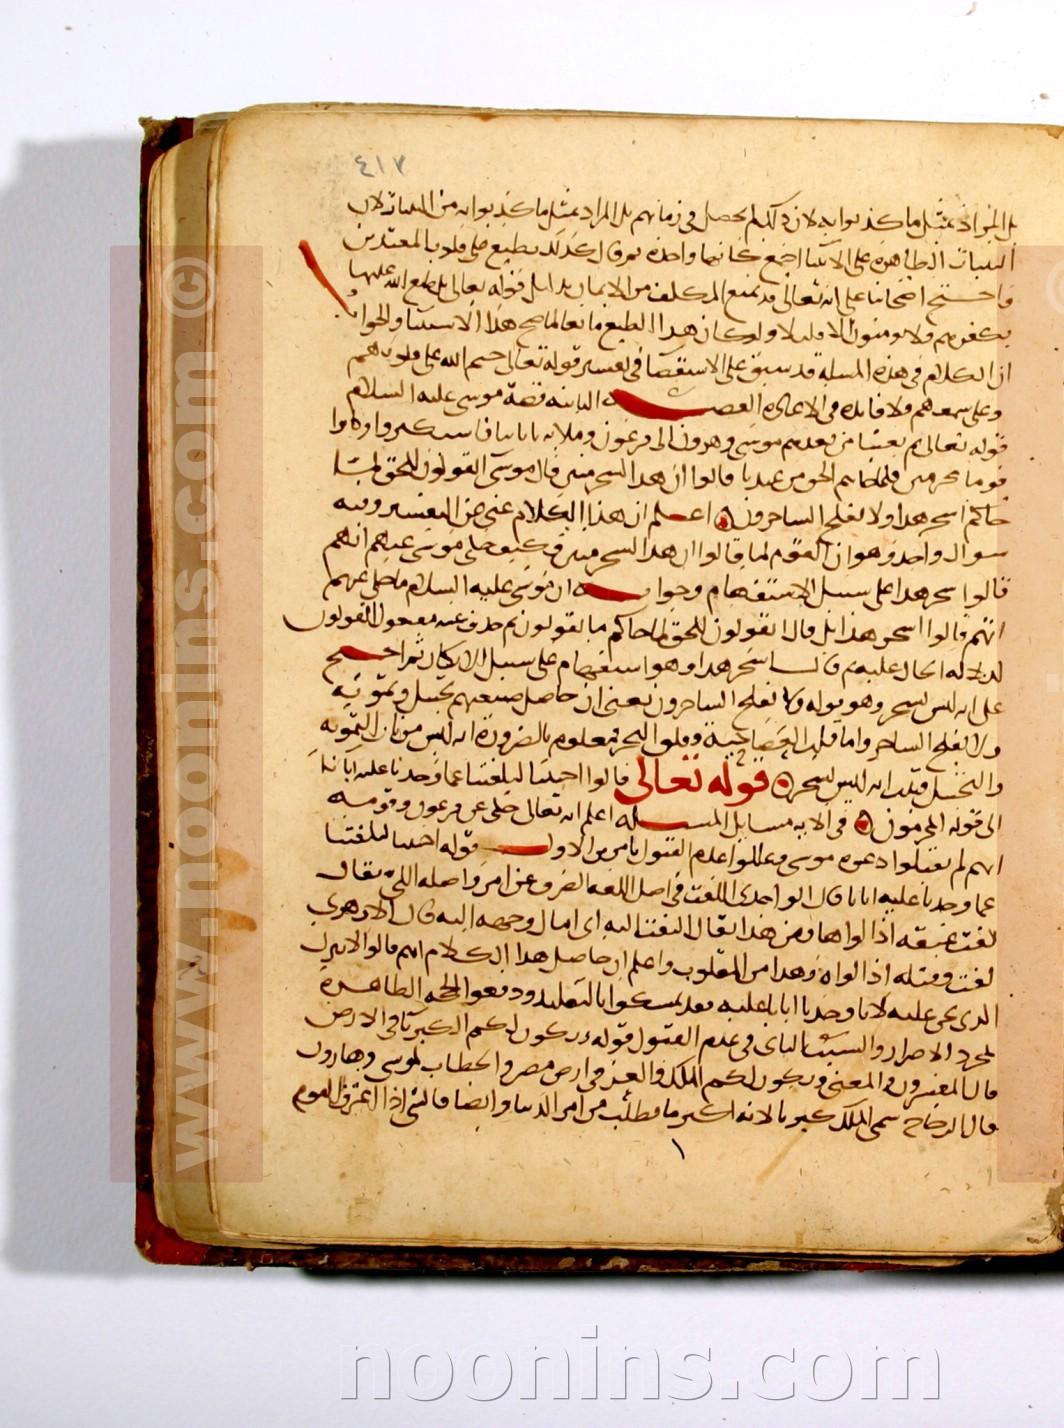 ٤١٣
بل المراد بمثل ما كذبوا به لان ذلك لم يحصل في زمانهم بل المراد بمثل ما كذبوا به من البينات لان
البينات الظاهرة على الانبيا اجمع كانها واحدة ثم قال كذلك نطبع على قلوب المعتدين
واحتج اصحابنا على ان الله تعالى قد يمنع المكلف من الايمان بدليل قوله تعالى بل طبع الله عليها
بكفرهم فلا يومنون الا قليلا ولو كان هذا الطبع مانعا لما صح هذا الاستثنا والجواب
ان الكلام في هذه المسلة قد سبق على الاستقصا في تفسير قوله تعالى ختم الله على قلوبهم
وعلى سمعهم ولا فايدة في الاعادة القصة الثانية قصة موسى عليه السلام
قوله تعالى ثم بعثنا من بعدهم موسى وهرون الى فرعون وملايه باياتنا فاستكبروا وكانوا
قوما مجرمين فلما جاهم الحق من عندنا قالوا ان هذا لسحر مبين قال موسى اتقولون للحق لما
جاكم اسحر هذا ولا يفلح الساحرون اعلم ان هذا الكلام غني عن التفسير وفيه
سوال واحد وهو ان القوم لما قالوا ان هذا لسحر مبين فكيف حكى موسى عنهم انهم
قالوا اسحر هذا على سبيل الاستفهام وجوابه ان موسى عليه السلام ما حكى عنهم
انهم قالوا اسحر هذا بل قال اتقولون للحق لما جاكم ما تقولون ثم حذف عنه مفعول اتقولون
لدلالة الحال عليه ثم قال اسحر هذا وهو استفهام على سبيل الانكار ثم احتج
على انه ليس بسحر وهو قوله ولا يفلح الساحرون يعني ان حاصل صنعهم تخييل وتمويه
ولا يفلح الساحر واما قلب العصا حية وفلق البحر فمعلوم بالضرورة انه ليس من باب التمويه
والتخييل فثبت انه ليس بسحر قوله تعالى قالوا اجيتنا لتلفتنا عما وجدنا عليه ابانا
الى قوله المجرمون في الاية مسايل المسلة اعلم انه تعالى حكى عن فرعون وقومه
انهم لم يقبلوا دعوة موسى وعللوا عدم القبول بامرين الاول قوله اجيتنا لتلفتنا
عما وجدنا عليه ابانا قال الواحدي اللفت في اصل اللغة الصرف عن امر واصله اللي يقال
لفت عنقه اذا لواها ومن هذا يقال التفت اليه اي امال وجهه اليه قال الازهري
لفت وفتله اذا لواه وهذا من المقلوب واعلم ان حاصل هذا الكلام انهم قالوا لا نترك
الذي نحن عليه لانا وجدنا ابانا عليه فقد تمسكوا بالتقليد ودفعوا الحجة الظاهرة
بمجرد الاصرار والسبب الثاني في عدم القبول قوله وتكون لكم الكبريا في الارض
قال المفسرون والمعنى ويكون لكم الملك والعز في ارض مصر والخطاب لموسى وهارون
قال الزجاج سمي الملك كبريا لانه اكبر ما يطلب من امر الدنيا وايضا فالنبي اذا اعترف القوم
www.noonins.com ©
noonins.com